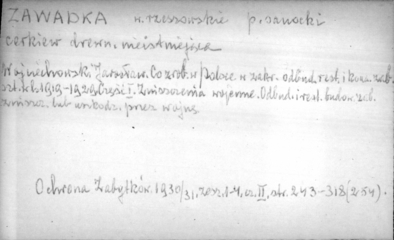 ZAWADKA w. rzeszowskie p. sanocki
cerkiew drewn. nieistniejąca
Wojciechowski Jarosław. Co zrob. w Polsce w zakr. odbud. rest. i kons. zab.
szt. k. b. 1919-1929. Część I. Zniszczenia wojenne. Odbud. i rest. budow. zab.
zniszcz. lub uszkodz. przez wojnę
Ochrona Zabytków. 1930/31, zesz. 1-4, cz. II, str. 243-318 (254).